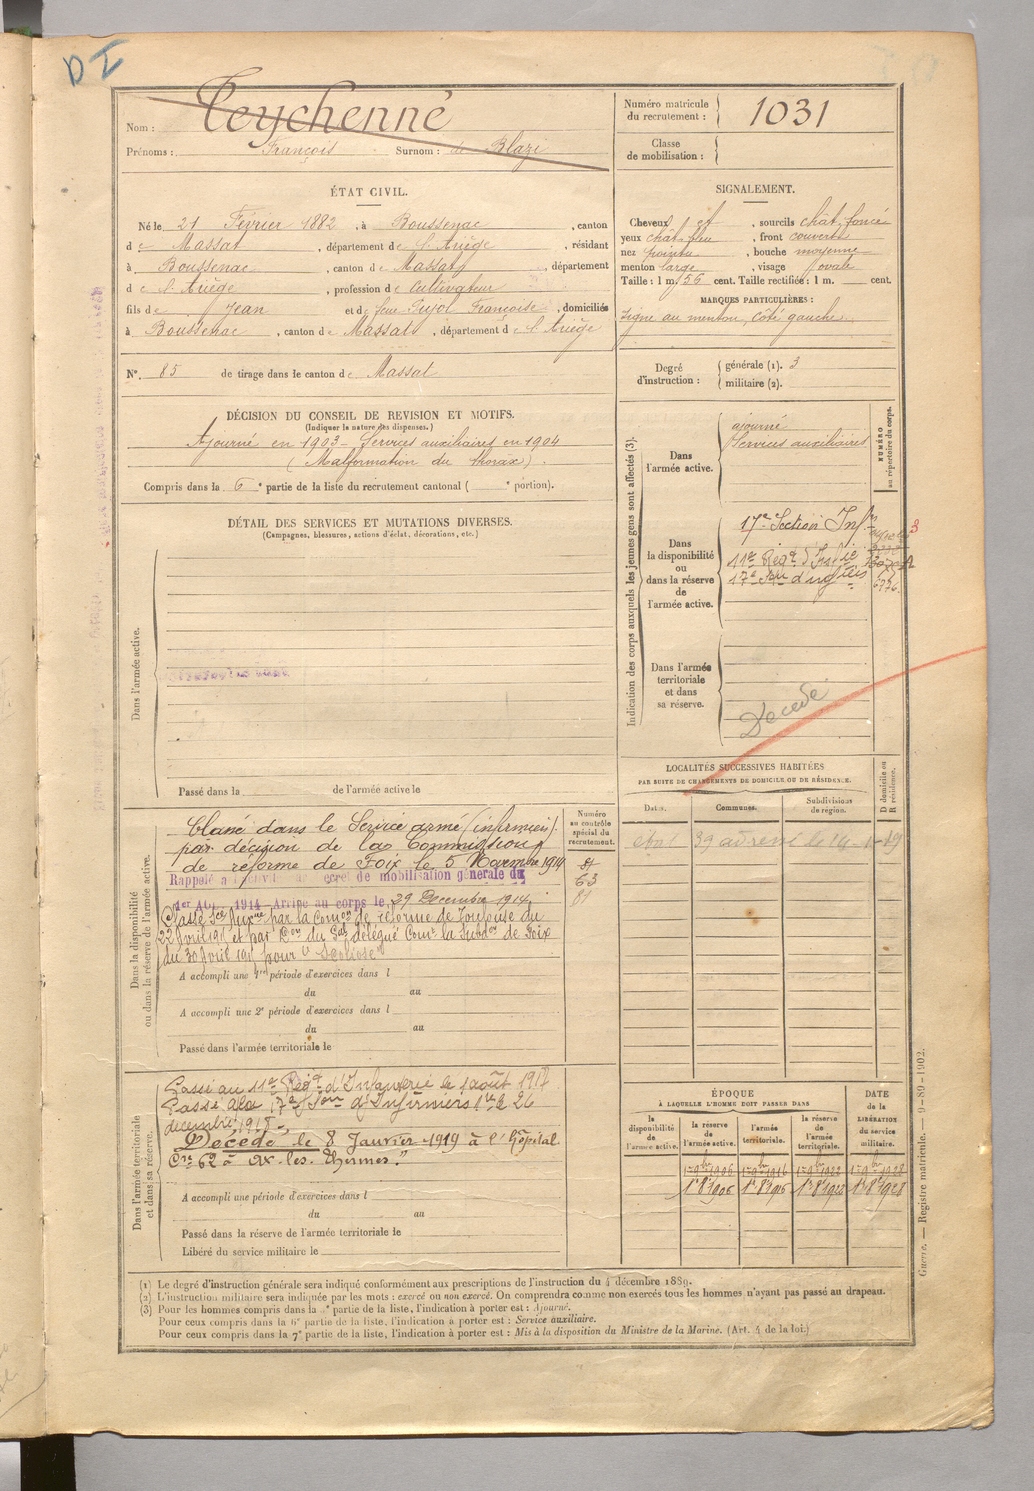 DI
Nom : Teychenné
Prénoms : François Surnom : de Blazi
Numéro matricule du recrutement : 1031
Classe de mobilisation :
ÉTAT CIVIL.
Né le 21 Février 1882, à Boussenac, canton
de Massat, département de l'Ariège, résidant
à Boussenac, canton de Massat, département
de l'Ariège, profession de Cultivateur
fils de Jean et de feue Pujol Françoise, domiciliés
à Boussenac, canton de Massat, département de l'Ariège
SIGNALEMENT.
Cheveux, sourcils chât. foncé
yeux, front couvert
nez pointu, bouche moyenne
menton large, visage ovale
Taille : 1 m. 56 cent. Taille rectifiée : 1 m. cent.
MARQUES PARTICULIÈRES :
signe au menton, côté gauche
N° 85 de tirage dans le canton de Massat
Degré d'instruction : générale (1). 3
militaire (2).
DÉCISION DU CONSEIL DE REVISION ET MOTIFS.
(Indiquer la nature des dispenses.)
Ajourné en 1903 - Services auxiliaires en 1904
(Malformation du thorax)
Compris dans la 6e partie de la liste du recrutement cantonal ( e portion).
Indication des corps auxquels les jeunes gens sont affectés (3).
NUMÉRO au répertoire du corps.
Dans l'armée active.
ajourné
Services auxiliaires
Dans la disponibilité ou dans la réserve de l'armée active.
17e Section Inf.
11e Régt d'Infie
17e Son d'infiers
6776.
Dans l'armée territoriale et dans sa réserve.
Décédé
DÉTAIL DES SERVICES ET MUTATIONS DIVERSES.
(Campagnes, blessures, actions d'éclat, décorations, etc.)
Dans l'armée active.
Passé dans la de l'armée active le
LOCALITÉS SUCCESSIVES HABITÉES
PAR SUITE DE CHANGEMENTS DE DOMICILE OU DE RÉSIDENCE.
Dates. Communes. Subdivisions de région. D domicile ou R résidence.
Numéro au contrôle spécial du recrutement.
81
63
81
Dans la disponibilité ou dans la réserve de l'armée active.
Classé dans le Service armé (infirmier)
par décision de la Commission
de réforme de Foix le 5 Novembre 1914
Rappelé à l'activité décret de mobilisation générale du
1er Août 1914 Arrivé au corps le 29 Décembre 1914.
Passé Sce Auxre par la Comon de réforme de Toulouse du
22 Avril et par Don du Gal délégué Comt la Subdon de Foix
du 30 Avril pour "Scoliose"
A accompli une 1re période d'exercices dans l
du au
A accompli une 2e période d'exercices dans l
du au
Passé dans l'armée territoriale le
Dans l'armée territoriale et dans sa réserve.
Passé au 11e Régt d'Infanterie le 1 août 1917
Passé à la 17e Son d'Infirmiers le 26
décembre
Décédé le 8 Janvier 1919 à l'Hôpital
Cre 62 à Ax-les-Thermes."
A accompli une période d'exercices dans l
du au
Passé dans la réserve de l'armée territoriale le
Libéré du service militaire le
ÉPOQUE
À LAQUELLE L'HOMME DOIT PASSER DANS
la disponibilité de l'armée active. la réserve de l'armée active. l'armée territoriale. la réserve de l'armée territoriale.
DATE de la LIBÉRATION du service militaire.
1er 9bre 1906 1er 9bre 1916 1er 9bre 1922 1er 9bre 1928
(1) Le degré d'instruction générale sera indiqué conformément aux prescriptions de l'instruction du 4 décembre 1889.
(2) L'instruction militaire sera indiquée par les mots : exercé ou non exercé. On comprendra comme non exercés tous les hommes n'ayant pas passé au drapeau.
(3) Pour les hommes compris dans la e partie de la liste, l'indication à porter est : Ajourné.
Pour ceux compris dans la 6e partie de la liste, l'indication à porter est : Service auxiliaire.
Pour ceux compris dans la 7e partie de la liste, l'indication à porter est : Mis à la disposition du Ministre de la Marine. (Art. 4 de la loi.)
Guerre. — Registre matricule. — 9-89-1902.